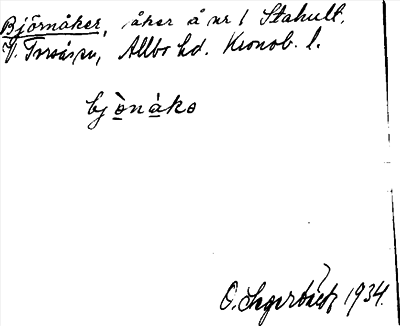 Björnåker, åker å nr 1 Stahult.
V. Torsås sn, Allbo hd. Kronob. l.
bjònàkə
O. 1934.